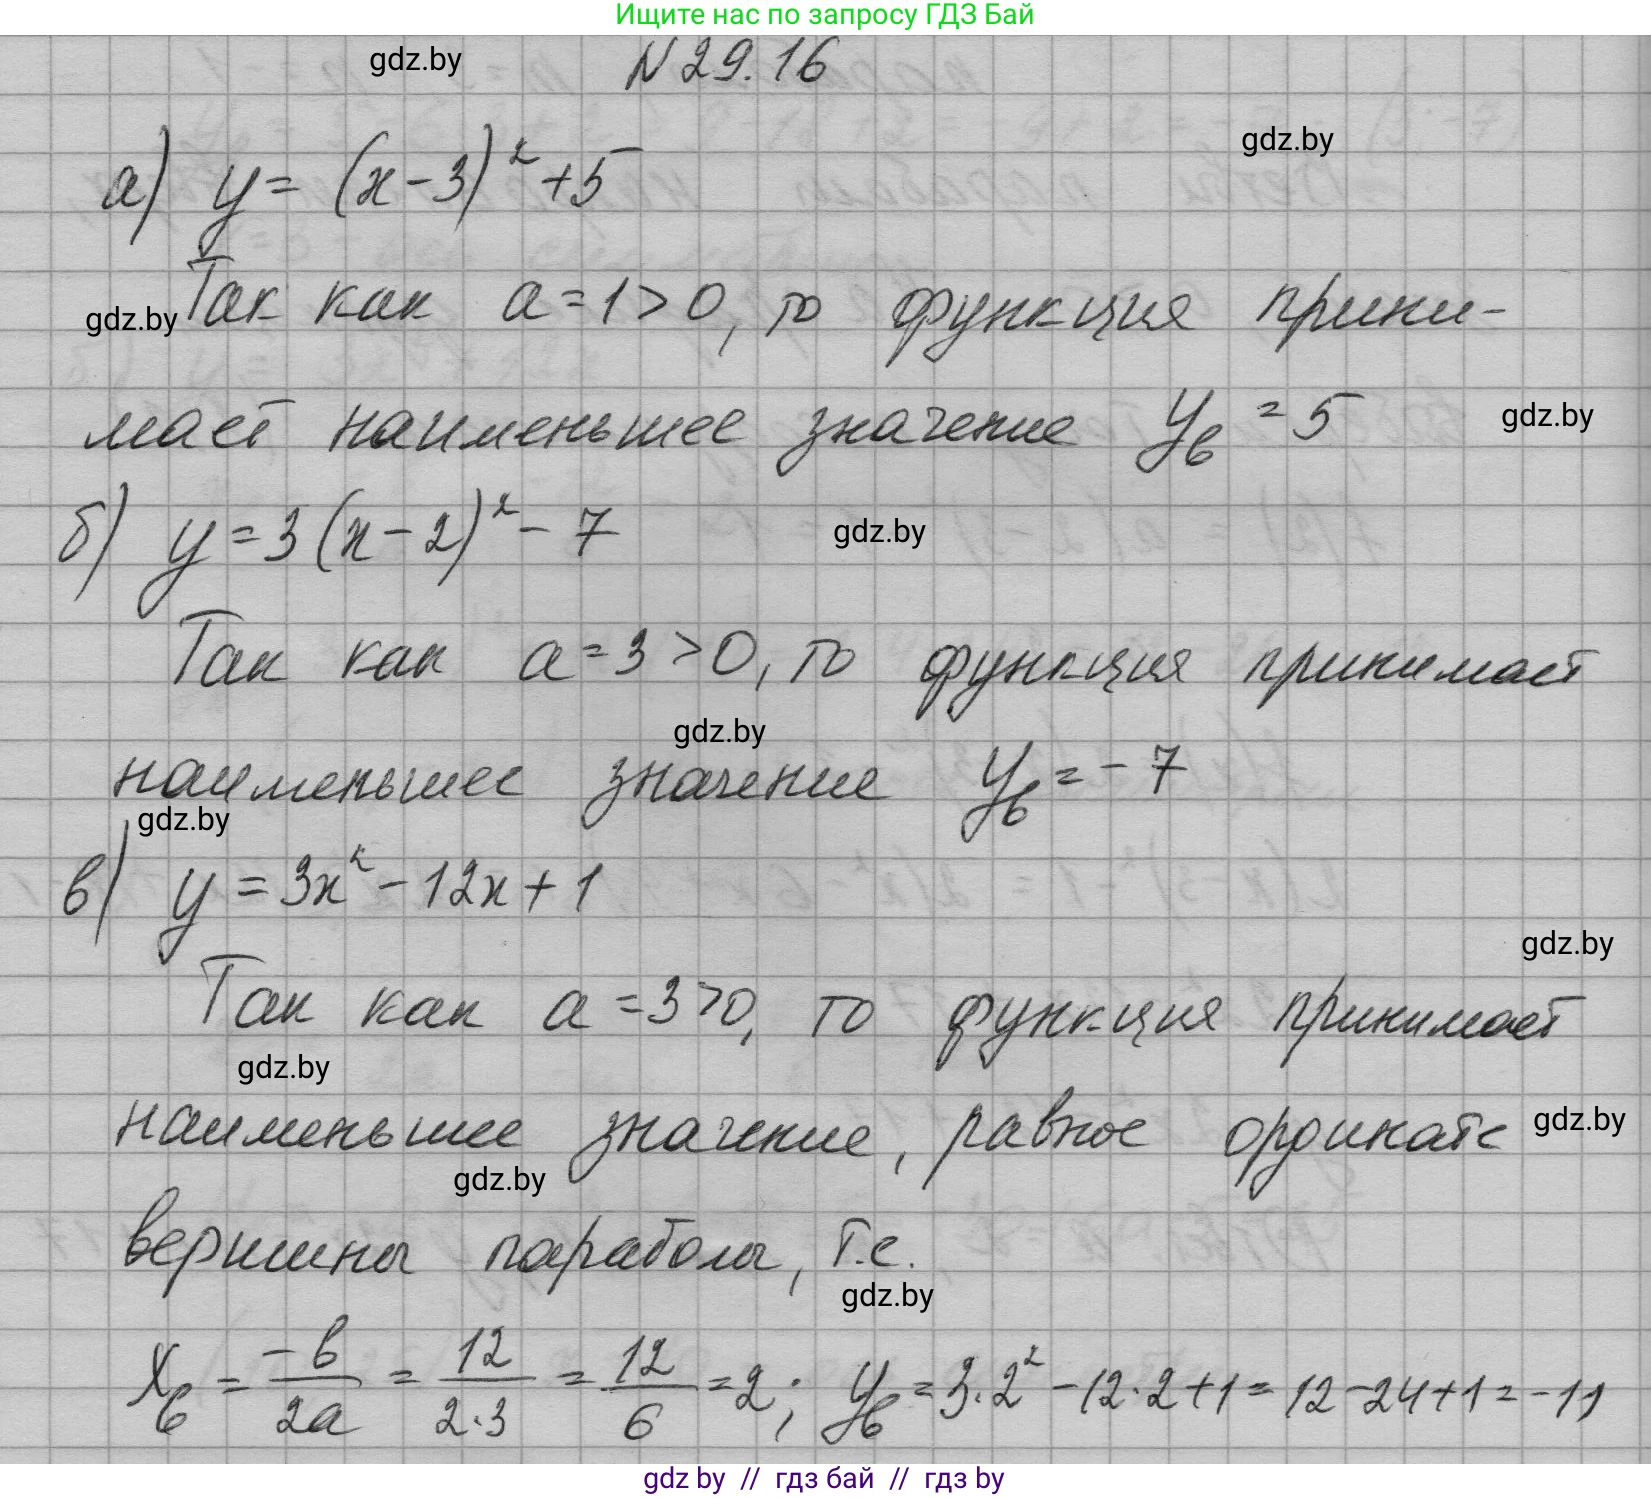 Ищите нас по запросу ГДЗ Бай
gdz.by N 29.16
gdz.by
а) y = (x-3)² + 5
gdz.by Так как a = 1 > 0, то функция прини-
мает наименьшее значение yв = 5 gdz.by
б) y = 3(x-2)² - 7 gdz.by
Так как a = 3 > 0, то функция принимает
gdz.by
наименьшее значение yв = -7
gdz.by
в) y = 3x² - 12x + 1
gdz.by
Так как a = 3 > 0, то функция принимает
gdz.by
наименьшее значение, равное ординате gdz.by
gdz.by
вершины параболы, т.е.
gdz.by
xв = -b/2a = 12/2·3 = 12/6 = 2; yв = 3·2² - 12·2 + 1 = 12 - 24 + 1 = -11
gdz by // гдз бай // гдз by